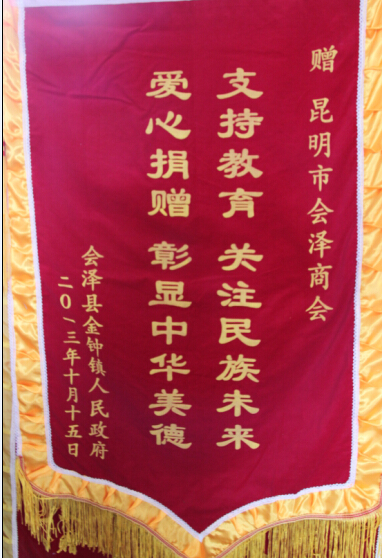 赠 昆明市会泽商会
支持教育 关注民族未来
爱心捐赠 彰显中华美德
会泽县金钟镇人民政府
二〇一三年十月十五日